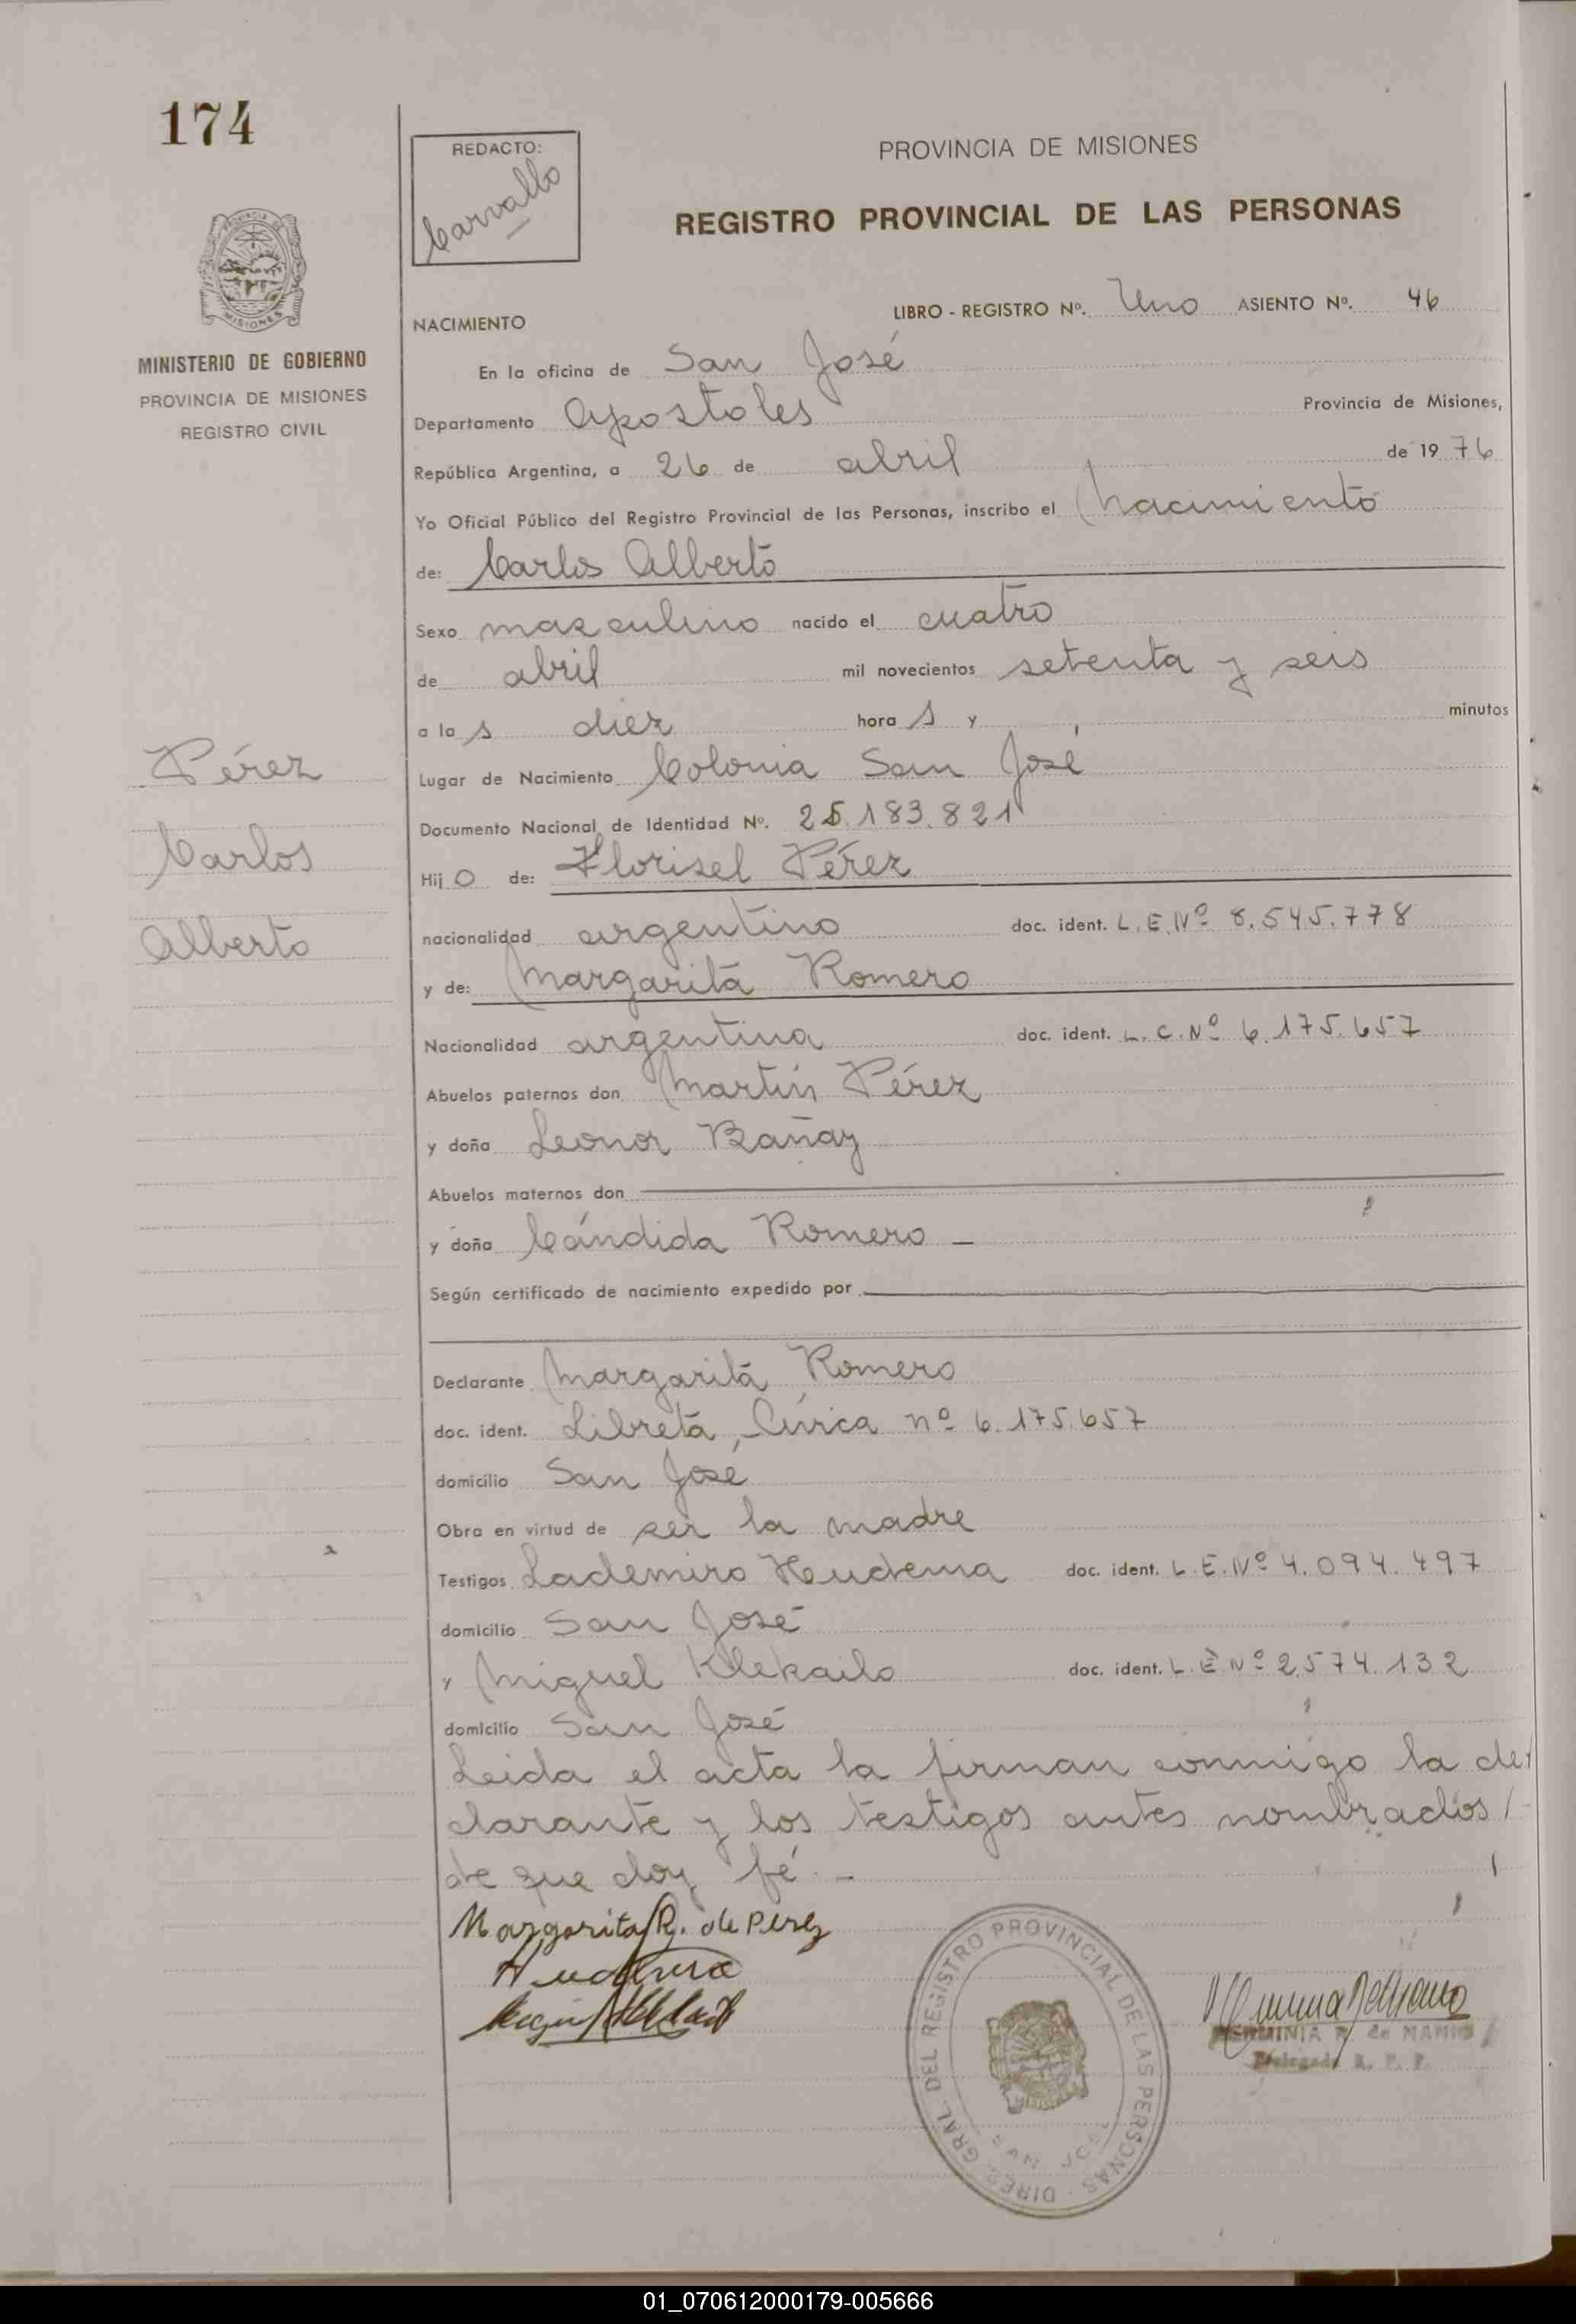 174
REDACTO:
Carvallo
PROVINCIA DE MISIONES
REGISTRO PROVINCIAL DE LAS PERSONAS
MISIONES
MINISTERIO DE GOBIERNO
PROVINCIA DE MISIONES
REGISTRO CIVIL
LIBRO - REGISTRO Nº. Uno ASIENTO Nº. 46
NACIMIENTO
En la oficina de San José
Departamento Apostoles Provincia de Misiones,
República Argentina, a 26 de abril de 1976
Yo Oficial Público del Registro Provincial de las Personas, inscribo el Nacimiento
de: Carlos Alberto
Sexo masculino nacido el cuatro
de abril mil novecientos setenta y seis
a las diez horas y minutos
Pérez
Carlos
Alberto
Lugar de Nacimiento Colonia San José
Documento Nacional de Identidad Nº. 25.183.821
Hijo de: Florisel Pérez
nacionalidad argentino doc. ident. L.E.Nº 8.545.778
y de: Margarita Romero
Nacionalidad argentina doc. ident. L.C.Nº 6.175.657
Abuelos paternos don Martín Pérez
y doña Leonor Bañay
Abuelos maternos don
y doña Cándida Romero –
Según certificado de nacimiento expedido por
Declarante Margarita Romero
doc. ident. Libreta Cívica nº 6.175.657
domicilio San José
Obra en virtud de ser la madre
Testigos Lademiro Hudema doc. ident. L.E.Nº 4.094.497
domicilio San José
y Miguel Klekailo doc. ident. L.E Nº 2.574.132
domicilio San José
Leida el acta la firman conmigo la de-
clarante y los testigos antes nombrados
de que doy fé. –
Margarita R. de Perez
DIREC. GRAL. DEL REGISTRO PROVINCIAL DE LAS PERSONAS
SAN JOSE
01_070612000179-005666